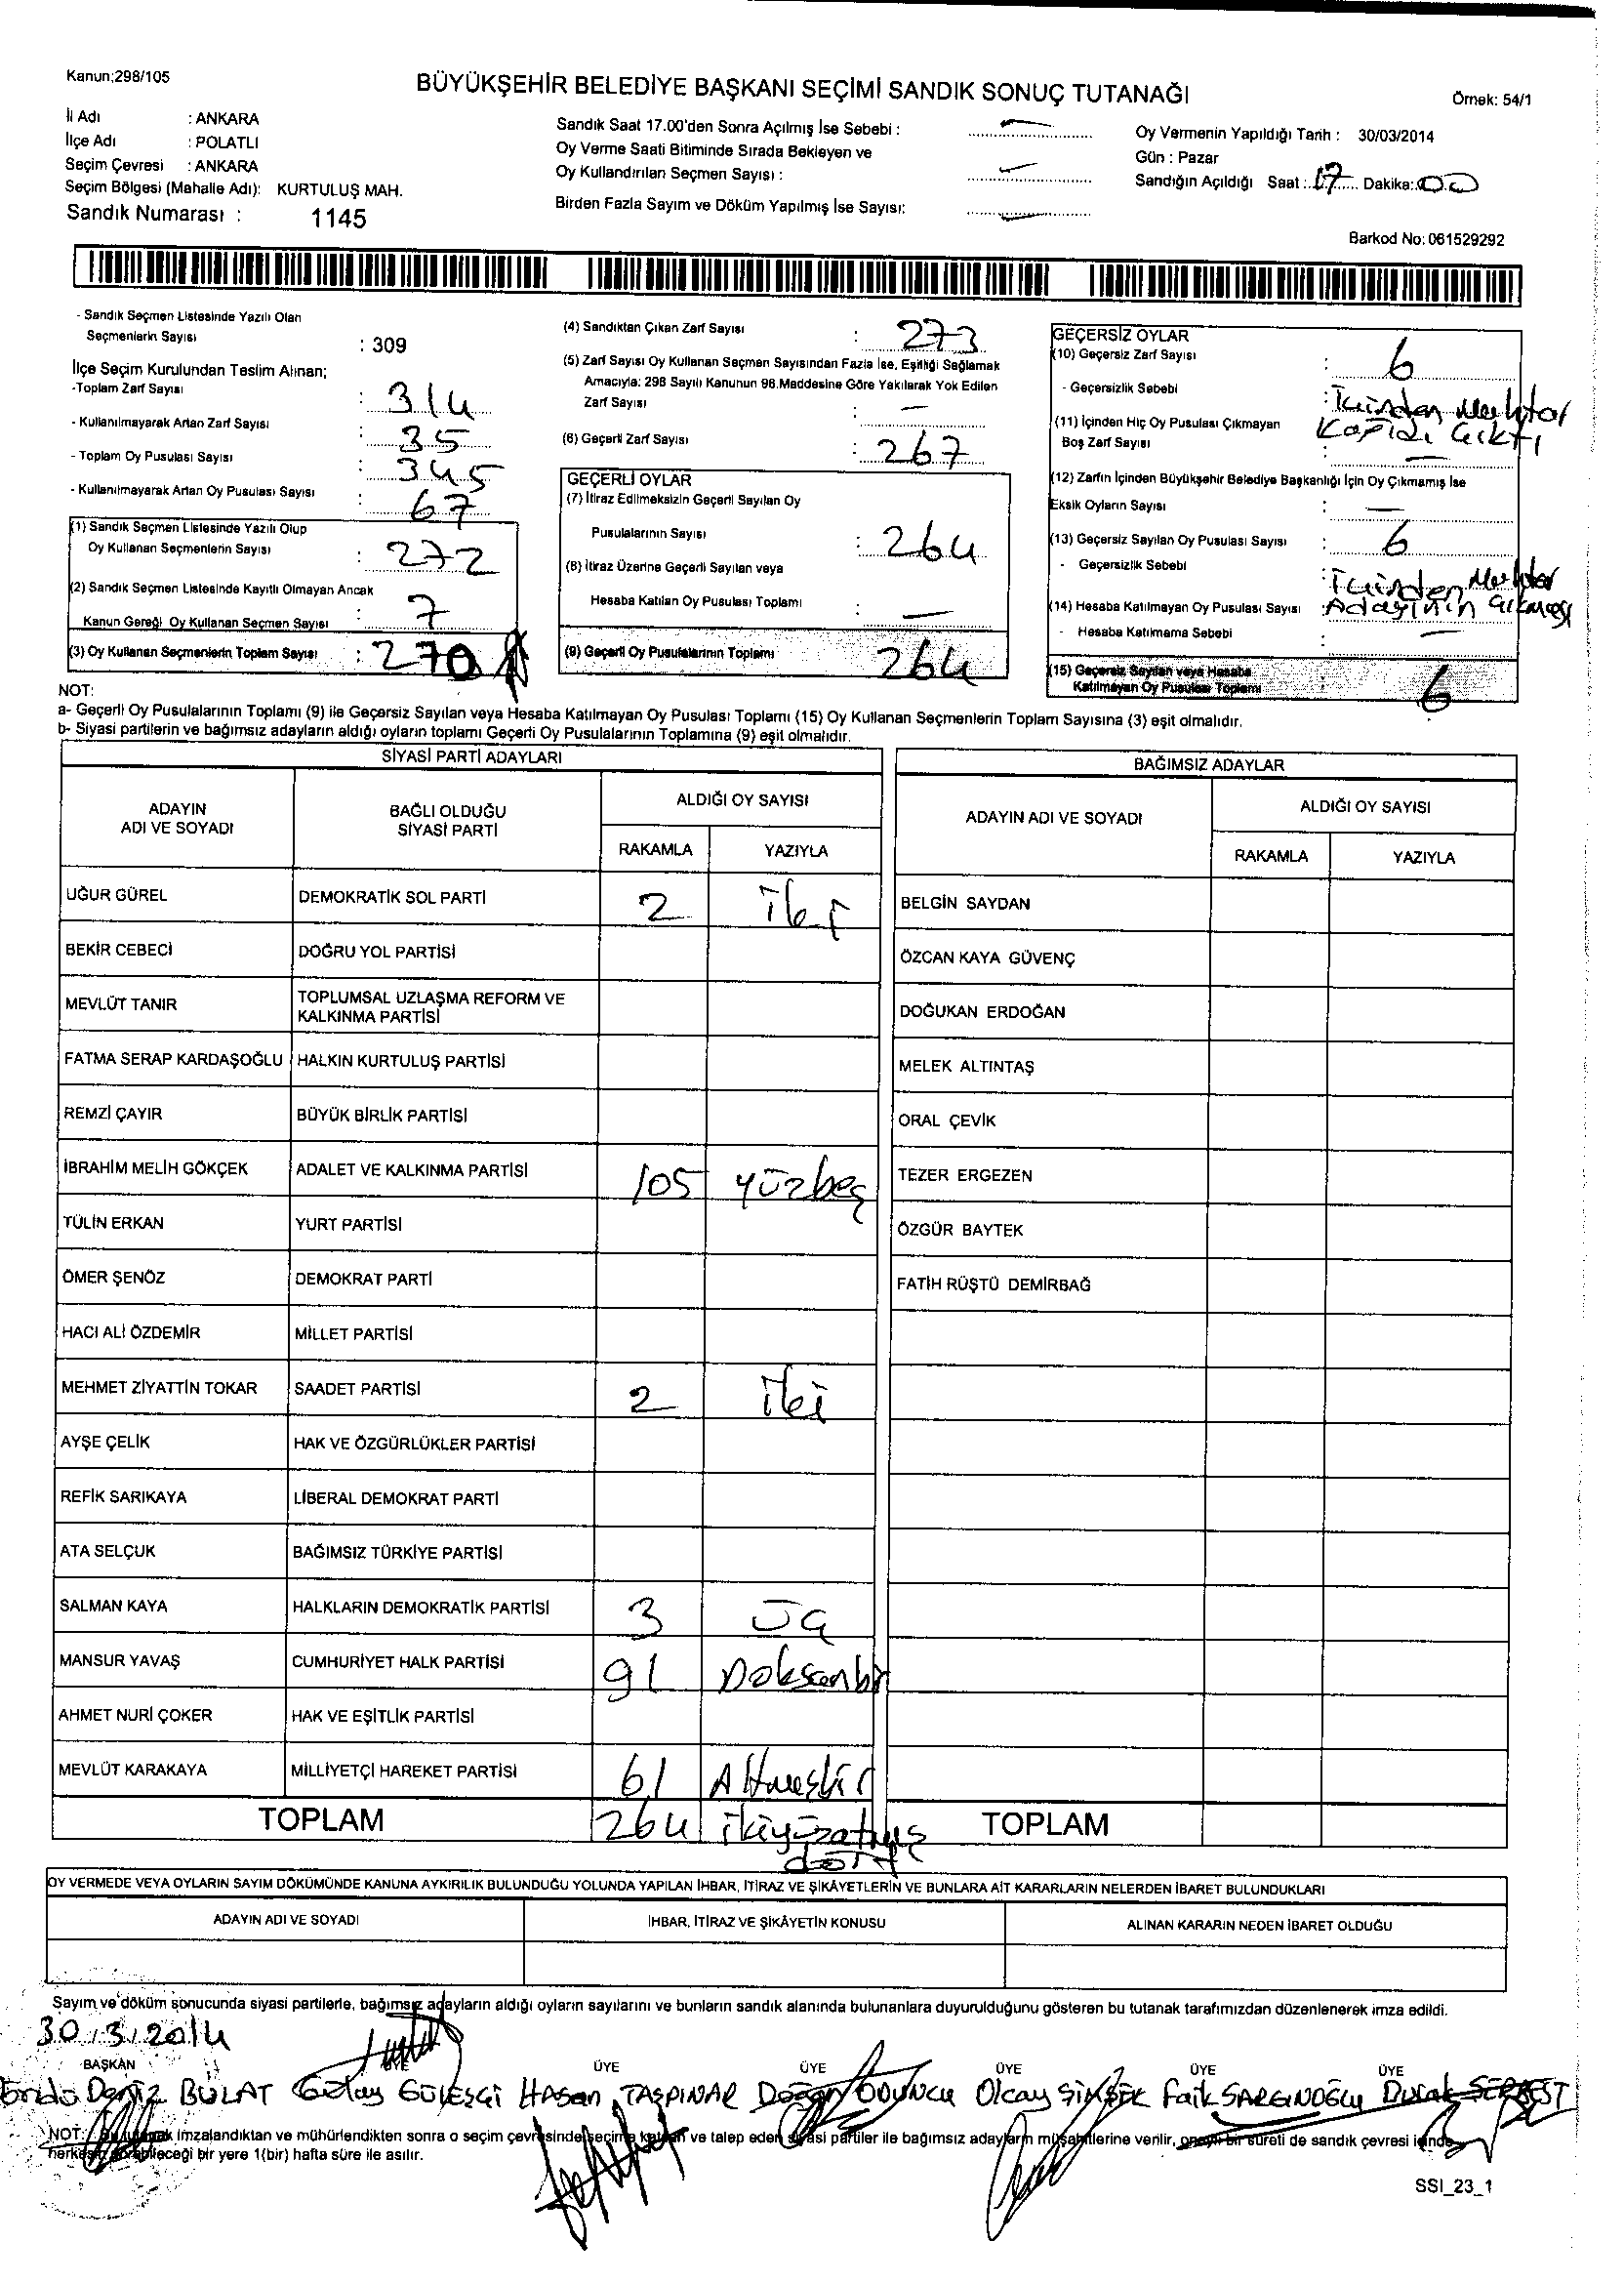 Kanun:298/105
BÜYÜKŞEHİR BELEDİYE BAŞKANI SEÇİMİ SANDIK SONUÇ TUTANAĞI
Örnek: 54/1
İl Adı : ANKARA
İlçe Adı : POLATLI
Seçim Çevresi : ANKARA
Seçim Bölgesi (Mahalle Adı): KURTULUŞ MAH.
Sandık Numarası : 1145
Sandık Saat 17.00'den Sonra Açılmış İse Sebebi : —
Oy Verme Saati Bitiminde Sırada Bekleyen ve
Oy Kullandırılan Seçmen Sayısı : —
Birden Fazla Sayım ve Döküm Yapılmış İse Sayısı: —
Oy Vermenin Yapıldığı Tarih : 30/03/2014
Gün : Pazar
Sandığın Açıldığı Saat : 17 Dakika: 00
Barkod No: 061529292
- Sandık Seçmen Listesinde Yazılı Olan
Seçmenlerin Sayısı : 309
İlçe Seçim Kurulundan Teslim Alınan;
-Toplam Zarf Sayısı : 314
- Kullanılmayarak Artan Zarf Sayısı : 35
- Toplam Oy Pusulası Sayısı : 345
- Kullanılmayarak Artan Oy Pusulası Sayısı : 67
(1) Sandık Seçmen Listesinde Yazılı Olup
Oy Kullanan Seçmenlerin Sayısı : 272
(2) Sandık Seçmen Listesinde Kayıtlı Olmayan Ancak
Kanun Gereği Oy Kullanan Seçmen Sayısı : 7
(3) Oy Kullanan Seçmenlerin Toplam Sayısı : 270
(4) Sandıktan Çıkan Zarf Sayısı : 273
(5) Zarf Sayısı Oy Kullanan Seçmen Sayısından Fazla İse, Eşitliği Sağlamak
Amacıyla: 298 Sayılı Kanunun 98.Maddesine Göre Yakılarak Yok Edilen
Zarf Sayısı : —
(6) Geçerli Zarf Sayısı : 267
GEÇERLİ OYLAR
(7) İtiraz Edilmeksizin Geçerli Sayılan Oy
Pusulalarının Sayısı : 264
(8) İtiraz Üzerine Geçerli Sayılan veya
Hesaba Katılan Oy Pusulası Toplamı : —
(9) Geçerli Oy Pusulalarının Toplamı 264
GEÇERSİZ OYLAR
(10) Geçersiz Zarf Sayısı : 6
- Geçersizlik Sebebi : İçinden Muhtar
Kağıdı Çıktı
(11) İçinden Hiç Oy Pusulası Çıkmayan
Boş Zarf Sayısı : —
(12) Zarfın İçinden Büyükşehir Belediye Başkanlığı İçin Oy Çıkmamış İse
Eksik Oyların Sayısı : —
(13) Geçersiz Sayılan Oy Pusulası Sayısı : 6
- Geçersizlik Sebebi : İçinden Muhtar
Adayının Çıkması
(14) Hesaba Katılmayan Oy Pusulası Sayısı :
- Hesaba Katılmama Sebebi : —
(15) Geçersiz Sayılan veya Hesaba
Katılmayan Oy Pusulası Toplamı : 6
NOT:
a- Geçerli Oy Pusulalarının Toplamı (9) ile Geçersiz Sayılan veya Hesaba Katılmayan Oy Pusulası Toplamı (15) Oy Kullanan Seçmenlerin Toplam Sayısına (3) eşit olmalıdır.
b- Siyasi partilerin ve bağımsız adayların aldığı oyların toplamı Geçerli Oy Pusulalarının Toplamına (9) eşit olmalıdır.
SİYASİ PARTİ ADAYLARI
ADAYIN ADI VE SOYADI BAĞLI OLDUĞU SİYASİ PARTİ ALDIĞI OY SAYISI
RAKAMLA YAZIYLA
UĞUR GÜREL DEMOKRATİK SOL PARTİ 2 İki
BEKİR CEBECİ DOĞRU YOL PARTİSİ
MEVLÜT TANIR TOPLUMSAL UZLAŞMA REFORM VE KALKINMA PARTİSİ
FATMA SERAP KARDAŞOĞLU HALKIN KURTULUŞ PARTİSİ
REMZİ ÇAYIR BÜYÜK BİRLİK PARTİSİ
İBRAHİM MELİH GÖKÇEK ADALET VE KALKINMA PARTİSİ 105 yüzbeş
TÜLİN ERKAN YURT PARTİSİ
ÖMER ŞENÖZ DEMOKRAT PARTİ
HACI ALİ ÖZDEMİR MİLLET PARTİSİ
MEHMET ZİYATTİN TOKAR SAADET PARTİSİ 2 İki
AYŞE ÇELİK HAK VE ÖZGÜRLÜKLER PARTİSİ
REFİK SARIKAYA LİBERAL DEMOKRAT PARTİ
ATA SELÇUK BAĞIMSIZ TÜRKİYE PARTİSİ
SALMAN KAYA HALKLARIN DEMOKRATİK PARTİSİ 3 üç
MANSUR YAVAŞ CUMHURİYET HALK PARTİSİ 91 Doksanbir
AHMET NURİ ÇOKER HAK VE EŞİTLİK PARTİSİ
MEVLÜT KARAKAYA MİLLİYETÇİ HAREKET PARTİSİ 61 Altmışbir
TOPLAM 264 ikiyüzatmış
dört
BAĞIMSIZ ADAYLAR
ADAYIN ADI VE SOYADI ALDIĞI OY SAYISI
RAKAMLA YAZIYLA
BELGİN SAYDAN
ÖZCAN KAYA GÜVENÇ
DOĞUKAN ERDOĞAN
MELEK ALTINTAŞ
ORAL ÇEVİK
TEZER ERGEZEN
ÖZGÜR BAYTEK
FATİH RÜŞTÜ DEMİRBAĞ
TOPLAM
OY VERMEDE VEYA OYLARIN SAYIM DÖKÜMÜNDE KANUNA AYKIRILIK BULUNDUĞU YOLUNDA YAPILAN İHBAR, İTİRAZ VE ŞİKÂYETLERİN VE BUNLARA AİT KARARLARIN NELERDEN İBARET BULUNDUKLARI
ADAYIN ADI VE SOYADI İHBAR, İTİRAZ VE ŞİKÂYETİN KONUSU ALINAN KARARIN NEDEN İBARET OLDUĞU
Sayım ve döküm sonucunda siyasi partilerle, bağımsız adayların aldığı oyların sayılarını ve bunların sandık alanında bulunanlara duyurulduğunu gösteren bu tutanak tarafımızdan düzenlenerek imza edildi.
30.3.2014
BAŞKAN ÜYE ÜYE ÜYE ÜYE ÜYE ÜYE
Deniz BULAT Gülay GÜLEŞÇİ Hasan TAŞPINAR Doğan ODUNCU Olcay ŞİMŞEK Faik SARGINOĞLU Durak SERBEST
NOT: Bu tutanak imzalandıktan ve mühürlendikten sonra o seçim çevresinde seçime katılan ve talep eden siyasi partiler ile bağımsız adayların müşahitlerine verilir, onaylı bir sureti de sandık çevresi içinde
herkesin görebileceği bir yere 1(bir) hafta süre ile asılır.
SSI_23_1